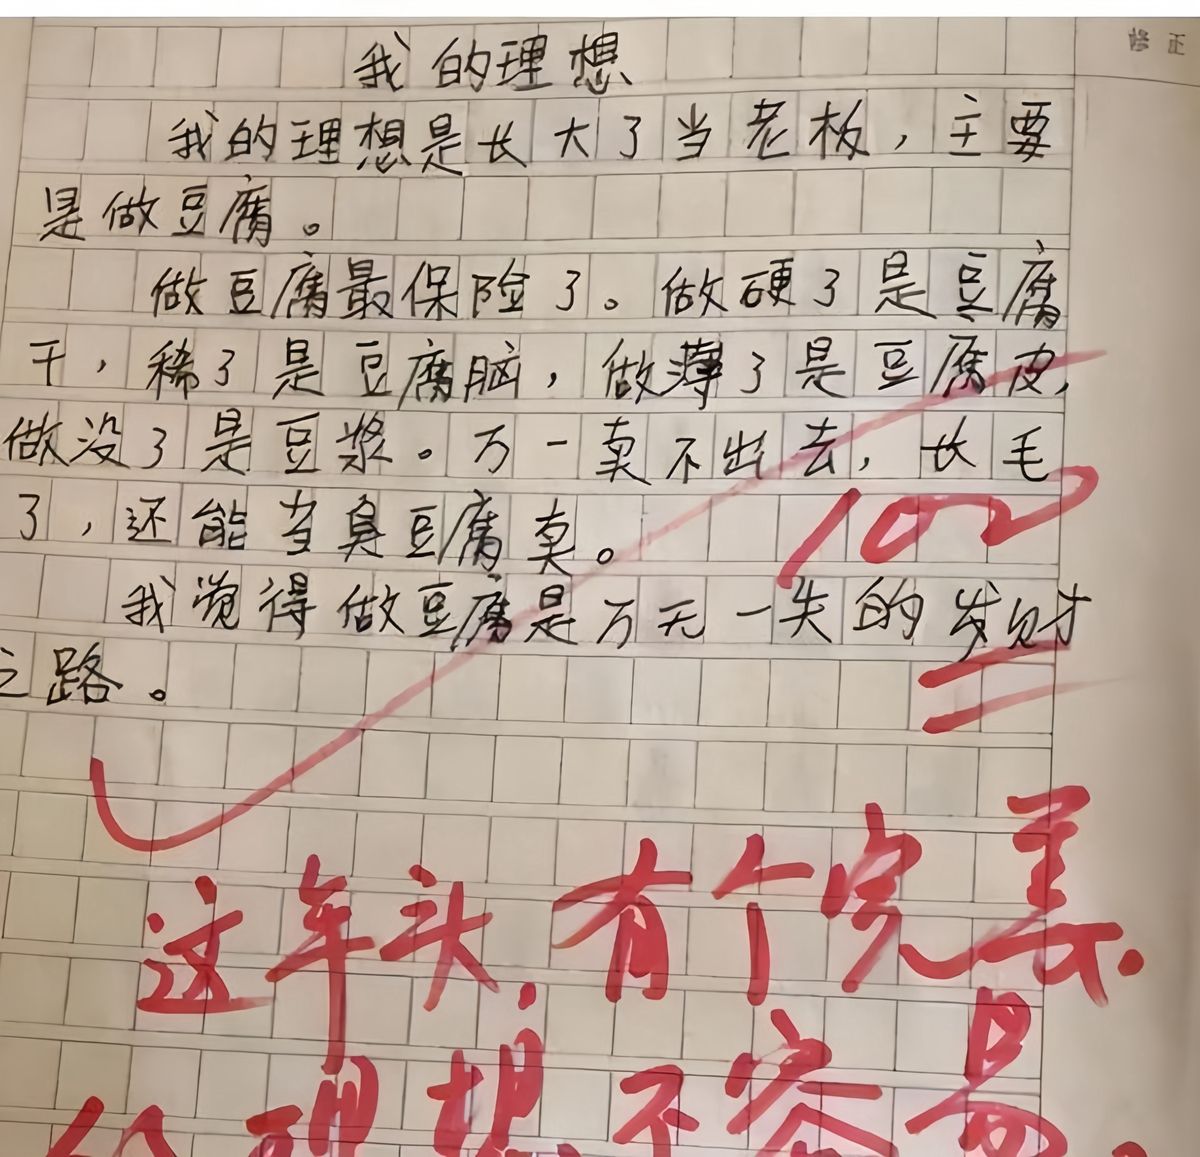 修正
我的理想
我的理想是长大了当老板，主要
是做豆腐。
做豆腐最保险了。做硬了是豆腐
干，稀了是豆腐脑，做薄了是豆腐皮，
做没了是豆浆。万一卖不出去，长毛
了，还能当臭豆腐卖。
我觉得做豆腐是万无一失的发财
之路。
100
这年头，有个完美
的理想不容易。